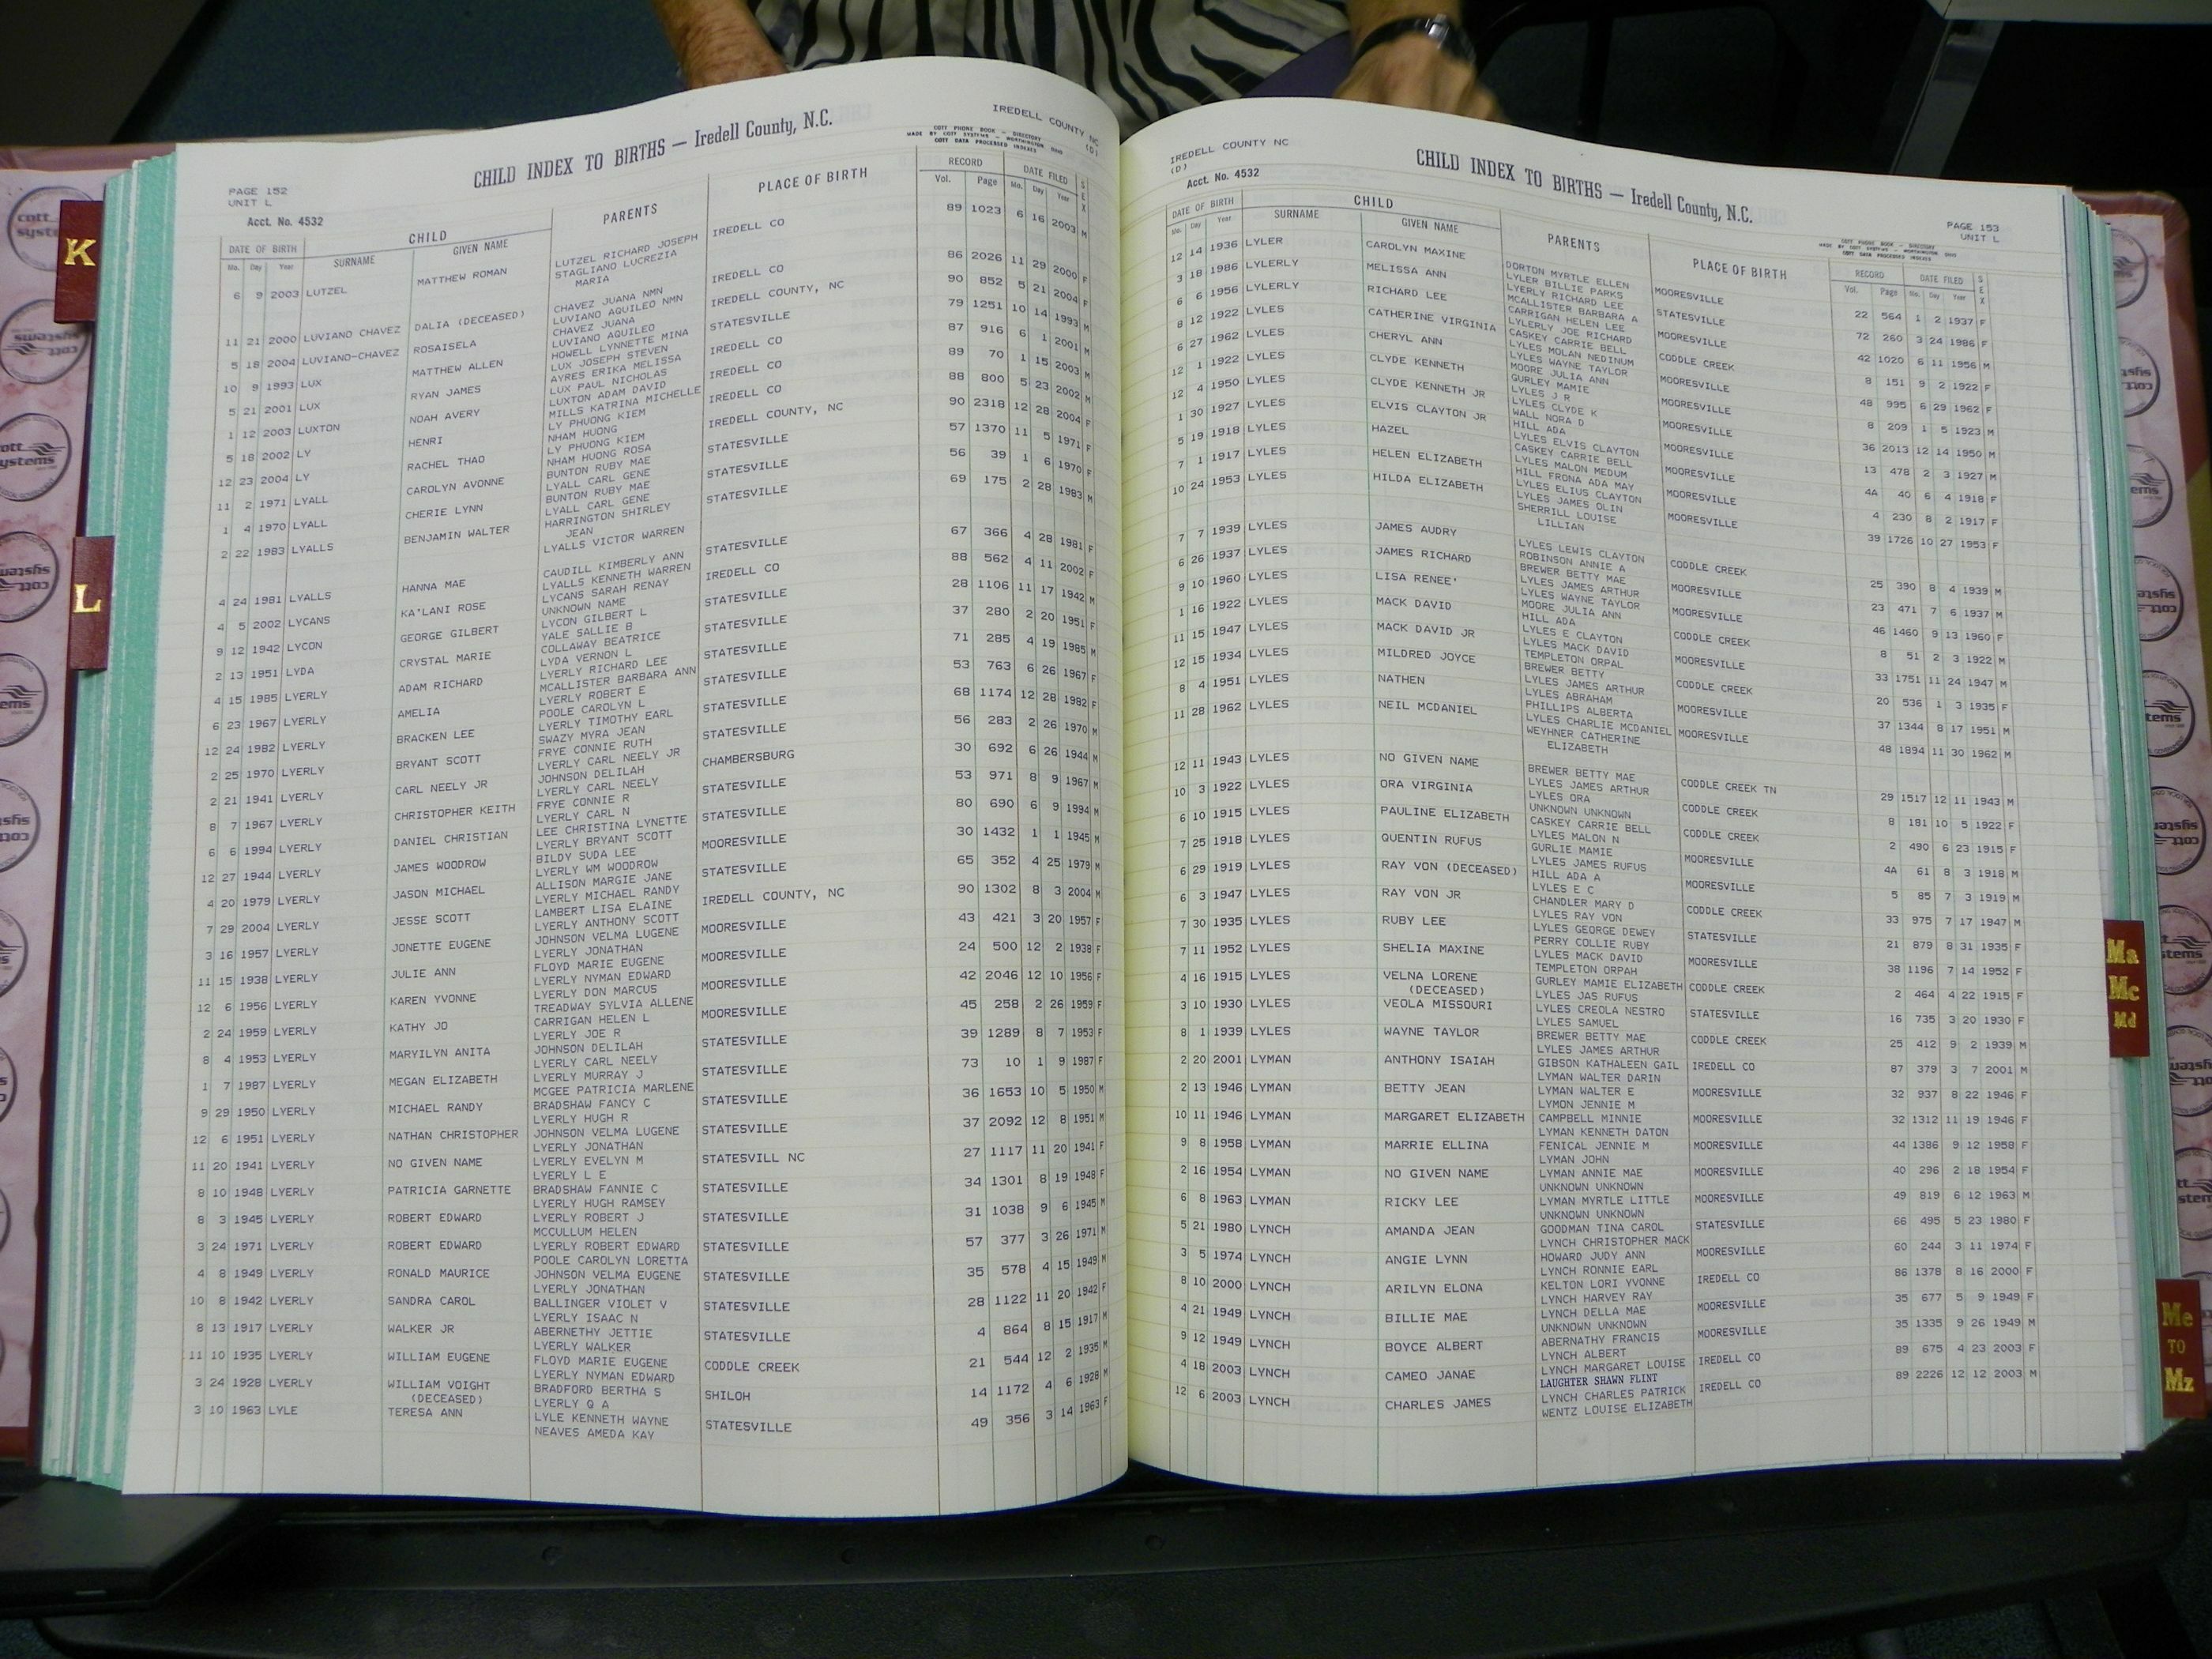 CHILD INDEX TO BIRTHS — Iredell County, N.C.
IREDELL COUNTY NC
(D)
COTT PHONE BOOK - DIRECTORY
MADE BY COTT SYSTEMS - WORTHINGTON OHIO
COTT DATA PROCESSED INDEXES
PAGE 152
UNIT L
Acct. No. 4532
DATE OF BIRTH CHILD PARENTS PLACE OF BIRTH RECORD DATE FILED SEX
Mo. Day Year SURNAME GIVEN NAME Vol. Page Mo. Day Year
6 9 2003 LUTZEL MATTHEW ROMAN LUTZEL RICHARD JOSEPH IREDELL CO 89 1023 6 16 2003 M
STAGLIANO LUCREZIA
MARIA
11 21 2000 LUVIANO CHAVEZ DALIA (DECEASED) CHAVEZ JUANA NMN IREDELL CO 86 2026 11 29 2000 F
LUVIANO AQUILEO NMN
5 18 2004 LUVIANO-CHAVEZ ROSAISELA CHAVEZ JUANA IREDELL COUNTY, NC 90 852 5 21 2004 F
LUVIANO AQUILEO
10 9 1993 LUX MATTHEW ALLEN HOWELL LYNNETTE MINA STATESVILLE 79 1251 10 14 1993 M
LUX JOSEPH STEVEN
5 21 2001 LUX RYAN JAMES AYRES ERIKA MELISSA IREDELL CO 87 916 6 1 2001 M
LUX PAUL NICHOLAS
1 12 2003 LUXTON NOAH AVERY LUXTON ADAM DAVID IREDELL CO 89 70 1 15 2003 M
MILLS KATRINA MICHELLE
5 18 2002 LY HENRI LY PHUONG KIEM IREDELL CO 88 800 5 23 2002 M
NHAM HUONG
12 23 2004 LY RACHEL THAO LY PHUONG KIEM IREDELL COUNTY, NC 90 2318 12 28 2004 F
NHAM HUONG ROSA
11 2 1971 LYALL CAROLYN AVONNE BUNTON RUBY MAE STATESVILLE 57 1370 11 5 1971 F
LYALL CARL GENE
1 4 1970 LYALL CHERIE LYNN BUNTON RUBY MAE STATESVILLE 56 39 1 6 1970 F
LYALL CARL GENE
2 22 1983 LYALLS BENJAMIN WALTER HARRINGTON SHIRLEY STATESVILLE 69 175 2 28 1983 M
JEAN
LYALLS VICTOR WARREN
4 24 1981 LYALLS HANNA MAE CAUDILL KIMBERLY ANN STATESVILLE 67 366 4 28 1981 F
LYALLS KENNETH WARREN
4 5 2002 LYCANS KA'LANI ROSE LYCANS SARAH RENAY IREDELL CO 88 562 4 11 2002 F
UNKNOWN NAME
9 12 1942 LYCON GEORGE GILBERT LYCON GILBERT L STATESVILLE 28 1106 11 17 1942 M
YALE SALLIE B
2 13 1951 LYDA CRYSTAL MARIE COLLAWAY BEATRICE STATESVILLE 37 280 2 20 1951 F
LYDA VERNON L
4 15 1985 LYERLY ADAM RICHARD LYERLY RICHARD LEE STATESVILLE 71 285 4 19 1985 M
MCALLISTER BARBARA ANN
6 23 1967 LYERLY AMELIA LYERLY ROBERT E STATESVILLE 53 763 6 26 1967 F
POOLE CAROLYN L
12 24 1982 LYERLY BRACKEN LEE LYERLY TIMOTHY EARL STATESVILLE 68 1174 12 28 1982 F
SWAZY MYRA JEAN
2 25 1970 LYERLY BRYANT SCOTT FRYE CONNIE RUTH STATESVILLE 56 283 2 26 1970 M
LYERLY CARL NEELY JR
2 21 1941 LYERLY CARL NEELY JR JOHNSON DELILAH CHAMBERSBURG 30 692 6 26 1944 M
LYERLY CARL NEELY
8 7 1967 LYERLY CHRISTOPHER KEITH FRYE CONNIE R STATESVILLE 53 971 8 9 1967 M
LYERLY CARL N
6 6 1994 LYERLY DANIEL CHRISTIAN LEE CHRISTINA LYNETTE STATESVILLE 80 690 6 9 1994 M
LYERLY BRYANT SCOTT
12 27 1944 LYERLY JAMES WOODROW BILDY SUDA LEE MOORESVILLE 30 1432 1 1 1945 M
LYERLY WM WOODROW
4 20 1979 LYERLY JASON MICHAEL ALLISON MARGIE JANE STATESVILLE 65 352 4 25 1979 M
LYERLY MICHAEL RANDY
7 29 2004 LYERLY JESSE SCOTT LAMBERT LISA ELAINE IREDELL COUNTY, NC 90 1302 8 3 2004 M
LYERLY ANTHONY SCOTT
3 16 1957 LYERLY JONETTE EUGENE JOHNSON VELMA LUGENE MOORESVILLE 43 421 3 20 1957 F
LYERLY JONATHAN
11 15 1938 LYERLY JULIE ANN FLOYD MARIE EUGENE MOORESVILLE 24 500 12 2 1938 F
LYERLY NYMAN EDWARD
12 6 1956 LYERLY KAREN YVONNE LYERLY DON MARCUS MOORESVILLE 42 2046 12 10 1956 F
TREADWAY SYLVIA ALLENE
2 24 1959 LYERLY KATHY JO CARRIGAN HELEN L MOORESVILLE 45 258 2 26 1959 F
LYERLY JOE R
8 4 1953 LYERLY MARYILYN ANITA JOHNSON DELILAH STATESVILLE 39 1289 8 7 1953 F
LYERLY CARL NEELY
1 7 1987 LYERLY MEGAN ELIZABETH LYERLY MURRAY J STATESVILLE 73 10 1 9 1987 F
MCGEE PATRICIA MARLENE
9 29 1950 LYERLY MICHAEL RANDY BRADSHAW FANCY C STATESVILLE 36 1653 10 5 1950 M
LYERLY HUGH R
12 6 1951 LYERLY NATHAN CHRISTOPHER JOHNSON VELMA LUGENE STATESVILLE 37 2092 12 8 1951 M
LYERLY JONATHAN
11 20 1941 LYERLY NO GIVEN NAME LYERLY EVELYN M STATESVILL NC 27 1117 11 20 1941 F
LYERLY L E
8 10 1948 LYERLY PATRICIA GARNETTE BRADSHAW FANNIE C STATESVILLE 34 1301 8 19 1948 F
LYERLY HUGH RAMSEY
8 3 1945 LYERLY ROBERT EDWARD LYERLY ROBERT J STATESVILLE 31 1038 9 6 1945 M
MCCULLUM HELEN
3 24 1971 LYERLY ROBERT EDWARD LYERLY ROBERT EDWARD STATESVILLE 57 377 3 26 1971 M
POOLE CAROLYN LORETTA
4 8 1949 LYERLY RONALD MAURICE JOHNSON VELMA EUGENE STATESVILLE 35 578 4 15 1949 M
LYERLY JONATHAN
10 8 1942 LYERLY SANDRA CAROL BALLINGER VIOLET V STATESVILLE 28 1122 11 20 1942 F
LYERLY ISAAC N
8 13 1917 LYERLY WALKER JR ABERNETHY JETTIE STATESVILLE 4 864 8 15 1917 M
LYERLY WALKER
11 10 1935 LYERLY WILLIAM EUGENE FLOYD MARIE EUGENE CODDLE CREEK 21 544 12 2 1935 M
LYERLY NYMAN EDWARD
3 24 1928 LYERLY WILLIAM VOIGHT BRADFORD BERTHA S SHILOH 14 1172 4 6 1928 M
(DECEASED) LYERLY Q A
3 10 1963 LYLE TERESA ANN LYLE KENNETH WAYNE STATESVILLE 49 356 3 14 1963 F
NEAVES AMEDA KAY
IREDELL COUNTY NC
(D)
Acct. No. 4532
CHILD INDEX TO BIRTHS — Iredell County, N.C.
PAGE 153
UNIT L
COTT PHONE BOOK - DIRECTORY
MADE BY COTT SYSTEMS - WORTHINGTON OHIO
COTT DATA PROCESSED INDEXES
DATE OF BIRTH CHILD PARENTS PLACE OF BIRTH RECORD DATE FILED SEX
Mo. Day Year SURNAME GIVEN NAME Vol. Page Mo. Day Year
12 14 1936 LYLER CAROLYN MAXINE DORTON MYRTLE ELLEN MOORESVILLE 22 564 1 2 1937 F
LYLER BILLIE PARKS
3 18 1986 LYLERLY MELISSA ANN LYERLY RICHARD LEE STATESVILLE 72 260 3 24 1986 F
MCALLISTER BARBARA A
6 6 1956 LYLERLY RICHARD LEE CARRIGAN HELEN LEE MOORESVILLE 42 1020 6 11 1956 M
LYLERLY JOE RICHARD
8 12 1922 LYLES CATHERINE VIRGINIA CASKEY CARRIE BELL CODDLE CREEK 8 151 9 2 1922 F
LYLES MOLAN NEDINUM
6 27 1962 LYLES CHERYL ANN LYLES WAYNE TAYLOR MOORESVILLE 48 995 6 29 1962 F
MOORE JULIA ANN
12 1 1922 LYLES CLYDE KENNETH GURLEY MAMIE MOORESVILLE 8 209 1 5 1923 M
LYLES J R
12 4 1950 LYLES CLYDE KENNETH JR LYLES CLYDE K MOORESVILLE 36 2013 12 14 1950 M
WALL NORA D
1 30 1927 LYLES ELVIS CLAYTON JR HILL ADA MOORESVILLE 13 478 2 3 1927 M
LYLES ELVIS CLAYTON
5 19 1918 LYLES HAZEL CASKEY CARRIE BELL MOORESVILLE 4A 40 6 4 1918 F
LYLES MALON MEDUM
7 1 1917 LYLES HELEN ELIZABETH HILL FRONA ADA MAY MOORESVILLE 4 230 8 2 1917 F
LYLES ELIUS CLAYTON
10 24 1953 LYLES HILDA ELIZABETH LYLES JAMES OLIN MOORESVILLE 39 1726 10 27 1953 F
SHERRILL LOUISE
LILLIAN
7 7 1939 LYLES JAMES AUDRY LYLES LEWIS CLAYTON CODDLE CREEK 25 390 8 4 1939 M
ROBINSON ANNIE A
6 26 1937 LYLES JAMES RICHARD BREWER BETTY MAE MOORESVILLE 23 471 7 6 1937 M
LYLES JAMES ARTHUR
9 10 1960 LYLES LISA RENEE' LYLES WAYNE TAYLOR CODDLE CREEK 46 1460 9 13 1960 F
MOORE JULIA ANN
1 16 1922 LYLES MACK DAVID HILL ADA MOORESVILLE 8 51 2 3 1922 M
LYLES E CLAYTON
11 15 1947 LYLES MACK DAVID JR LYLES MACK DAVID CODDLE CREEK 33 1751 11 24 1947 M
TEMPLETON ORPAL
12 15 1934 LYLES MILDRED JOYCE BREWER BETTY MOORESVILLE 20 536 1 3 1935 F
LYLES JAMES ARTHUR
8 4 1951 LYLES NATHEN LYLES ABRAHAM MOORESVILLE 37 1344 8 17 1951 M
PHILLIPS ALBERTA
11 28 1962 LYLES NEIL MCDANIEL LYLES CHARLIE MCDANIEL MOORESVILLE 48 1894 11 30 1962 M
WEYHNER CATHERINE
ELIZABETH
12 11 1943 LYLES NO GIVEN NAME BREWER BETTY MAE CODDLE CREEK TN 29 1517 12 11 1943 M
LYLES JAMES ARTHUR
10 3 1922 LYLES ORA VIRGINIA LYLES ORA CODDLE CREEK 8 181 10 5 1922 F
UNKNOWN UNKNOWN
6 10 1915 LYLES PAULINE ELIZABETH CASKEY CARRIE BELL CODDLE CREEK 2 490 6 23 1915 F
LYLES MALON N
7 25 1918 LYLES QUENTIN RUFUS GURLIE MAMIE MOORESVILLE 4A 61 8 3 1918 M
LYLES JAMES RUFUS
6 29 1919 LYLES RAY VON (DECEASED) HILL ADA A MOORESVILLE 5 85 7 3 1919 M
LYLES E C
6 3 1947 LYLES RAY VON JR CHANDLER MARY D CODDLE CREEK 33 975 7 17 1947 M
LYLES RAY VON
7 30 1935 LYLES RUBY LEE LYLES GEORGE DEWEY STATESVILLE 21 879 8 31 1935 F
PERRY COLLIE RUBY
7 11 1952 LYLES SHELIA MAXINE LYLES MACK DAVID MOORESVILLE 38 1196 7 14 1952 F
TEMPLETON ORPAH
4 16 1915 LYLES VELNA LORENE GURLEY MAMIE ELIZABETH CODDLE CREEK 2 464 4 22 1915 F
(DECEASED) LYLES JAS RUFUS
3 10 1930 LYLES VEOLA MISSOURI LYLES CREOLA NESTRO STATESVILLE 16 735 3 20 1930 F
LYLES SAMUEL
8 1 1939 LYLES WAYNE TAYLOR BREWER BETTY MAE CODDLE CREEK 25 412 9 2 1939 M
LYLES JAMES ARTHUR
2 20 2001 LYMAN ANTHONY ISAIAH GIBSON KATHALEEN GAIL IREDELL CO 87 379 3 7 2001 M
LYMAN WALTER DARIN
2 13 1946 LYMAN BETTY JEAN LYMAN WALTER E MOORESVILLE 32 937 8 22 1946 F
LYMON JENNIE M
10 11 1946 LYMAN MARGARET ELIZABETH CAMPBELL MINNIE MOORESVILLE 32 1312 11 19 1946 F
LYMAN KENNETH DATON
9 8 1958 LYMAN MARRIE ELLINA FENICAL JENNIE M MOORESVILLE 44 1386 9 12 1958 F
LYMAN JOHN
2 16 1954 LYMAN NO GIVEN NAME LYMAN ANNIE MAE MOORESVILLE 40 296 2 18 1954 F
UNKNOWN UNKNOWN
6 8 1963 LYMAN RICKY LEE LYMAN MYRTLE LITTLE MOORESVILLE 49 819 6 12 1963 M
UNKNOWN UNKNOWN
5 21 1980 LYNCH AMANDA JEAN GOODMAN TINA CAROL STATESVILLE 66 495 5 23 1980 F
LYNCH CHRISTOPHER MACK
3 5 1974 LYNCH ANGIE LYNN HOWARD JUDY ANN MOORESVILLE 60 244 3 11 1974 F
LYNCH RONNIE EARL
8 10 2000 LYNCH ARILYN ELONA KELTON LORI YVONNE IREDELL CO 86 1378 8 16 2000 F
LYNCH HARVEY RAY
4 21 1949 LYNCH BILLIE MAE LYNCH DELLA MAE MOORESVILLE 35 677 5 9 1949 F
UNKNOWN UNKNOWN
9 12 1949 LYNCH BOYCE ALBERT ABERNATHY FRANCIS MOORESVILLE 35 1335 9 26 1949 M
LYNCH ALBERT
4 18 2003 LYNCH CAMEO JANAE LYNCH MARGARET LOUISE IREDELL CO 89 675 4 23 2003 F
LAUGHTER SHAWN FLINT
12 6 2003 LYNCH CHARLES JAMES LYNCH CHARLES PATRICK IREDELL CO 89 2226 12 12 2003 M
WENTZ LOUISE ELIZABETH
K
L
Ma
Mc
Md
Me
TO
Mz
cott
systems